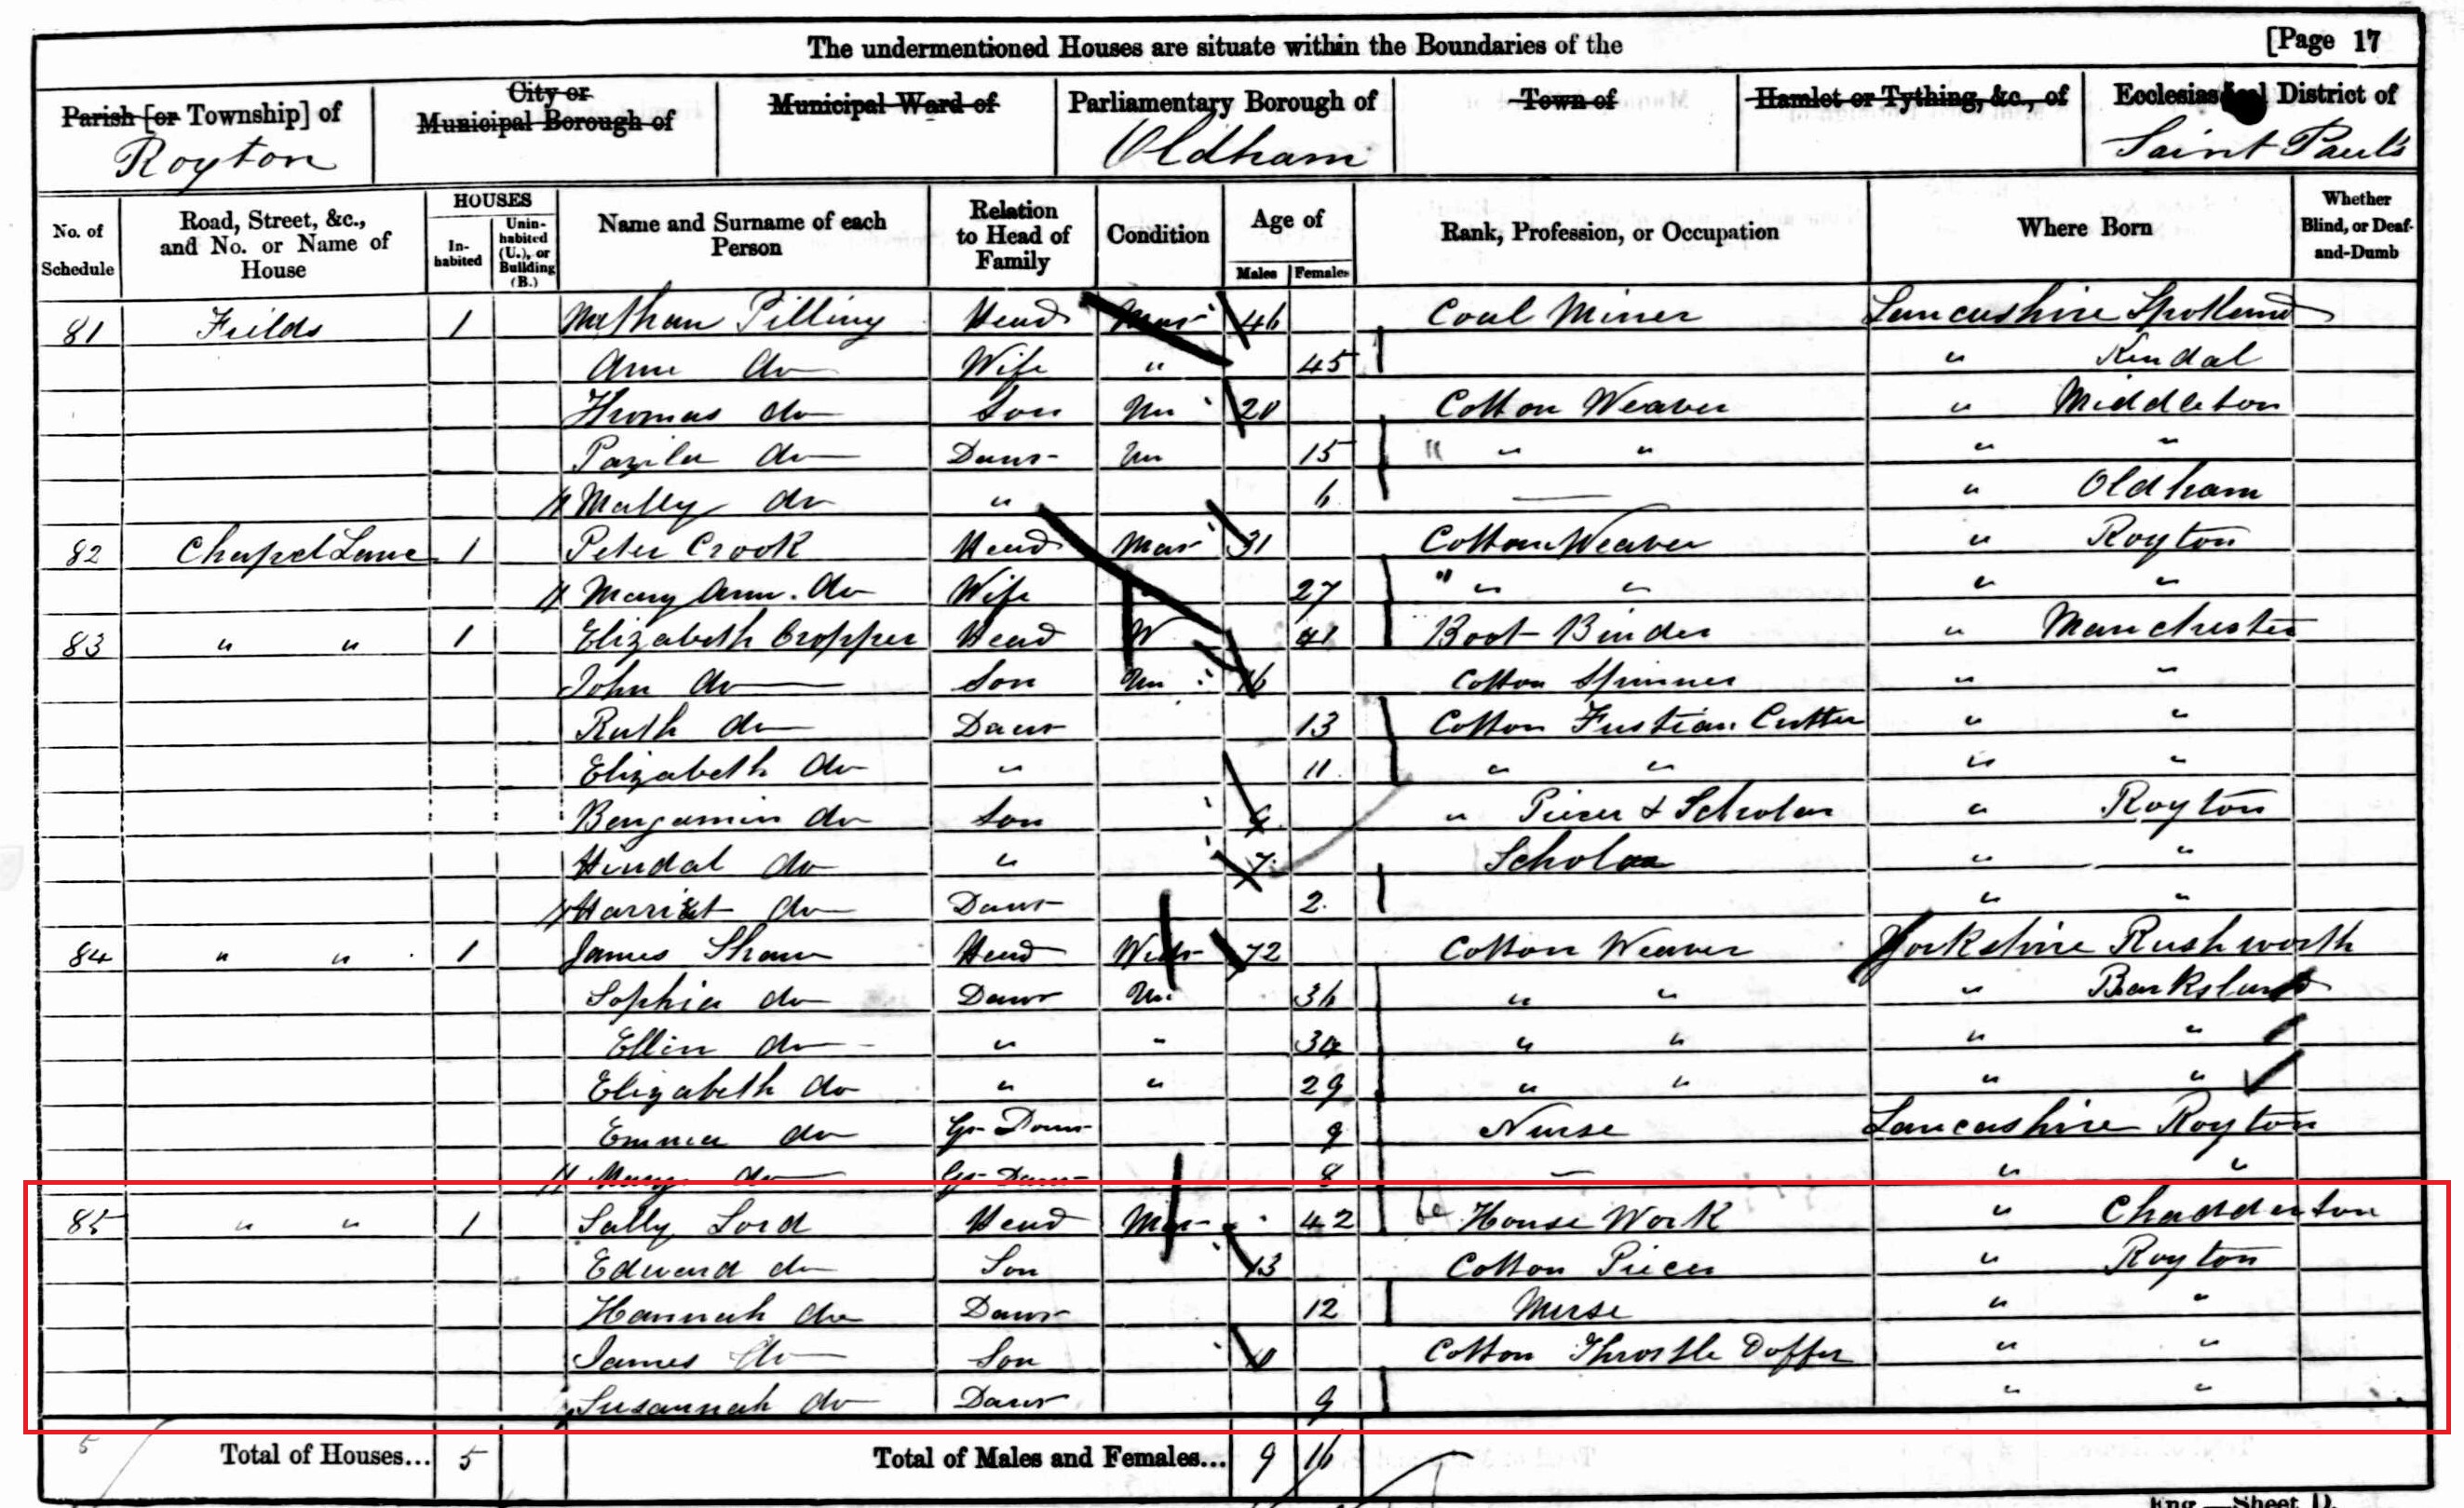 The undermentioned Houses are situate within the Boundaries of the [Page 17
Parish [or Township] of Royton City or Municipal Borough of Municipal Ward of Parliamentary Borough of Oldham Town of Hamlet or Tything, &c., of Ecclesiastical District of Saint Paul's
No. of Schedule Road, Street, &c., and No. or Name of House HOUSES Inhabited Uninhabited (U.), or Building (B.) Name and Surname of each Person Relation to Head of Family Condition Age of Males Females Rank, Profession, or Occupation Where Born Whether Blind, or Deaf-and-Dumb
81 Fields 1 Nathan Pilling Head Mar 46 Coal Miner Lancashire Spotland
Ann do Wife " 45 " Kendal
Thomas do Son Un 20 Cotton Weaver " Middleton
do Daur Un 15 " " " " "
Mally do " 6 " Oldham
82 Chapel Lane 1 Peter Crook Head Mar 31 Cotton Weaver " Royton
Mary Ann do Wife 27 " " " " "
83 " " 1 Elizabeth Cropper Head W 41 Boot Binder " Manchester
John do Son Un 16 Cotton Spinner " "
Ruth do Daur 13 Cotton Fustian Cutter " "
Elizabeth do " 11 " " " "
Benjamin do Son 9 " Piecer & Scholar " Royton
Hindal do " 7 Scholar " "
Harriet do Daur 2 " "
84 " " 1 James Shaw Head Widr 72 Cotton Weaver Yorkshire Rushworth
Sophia do Daur Un 36 " " " Barksland
Ellin do " " 34 " " " "
Elizabeth do " " 29 " " " "
Emma do Gr Daur 9 Nurse Lancashire Royton
Mary do Gr Daur 8 " "
85 " " 1 Sally Lord Head Mar 42 House Work " Chadderton
Edward do Son 13 Cotton Piecer " Royton
Hannah do Daur 12 Nurse " "
James do Son 10 Cotton Throstle Doffer " "
Susannah do Daur 9 " "
5 Total of Houses... 5 Total of Males and Females... 9 16
Eng.—Sheet D.